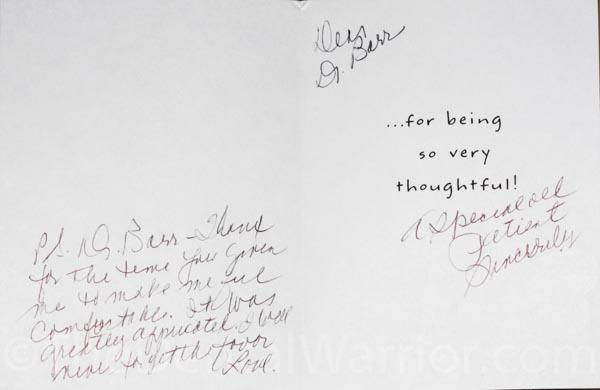 P.S. Dr. Barr - Thanx
for the time you given
me to make me
comfortable. It was
greatly appricated. I will
never forget the favor
Love.
Dear
Dr. Barr
...for being
so very
thoughtful!
A special old
Patient
Sincerely
Warrior.com